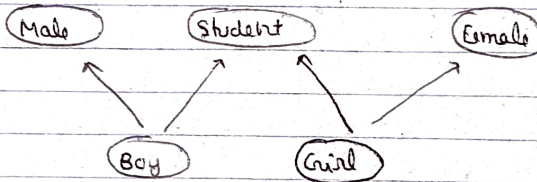 Male Student Female
Boy Girl